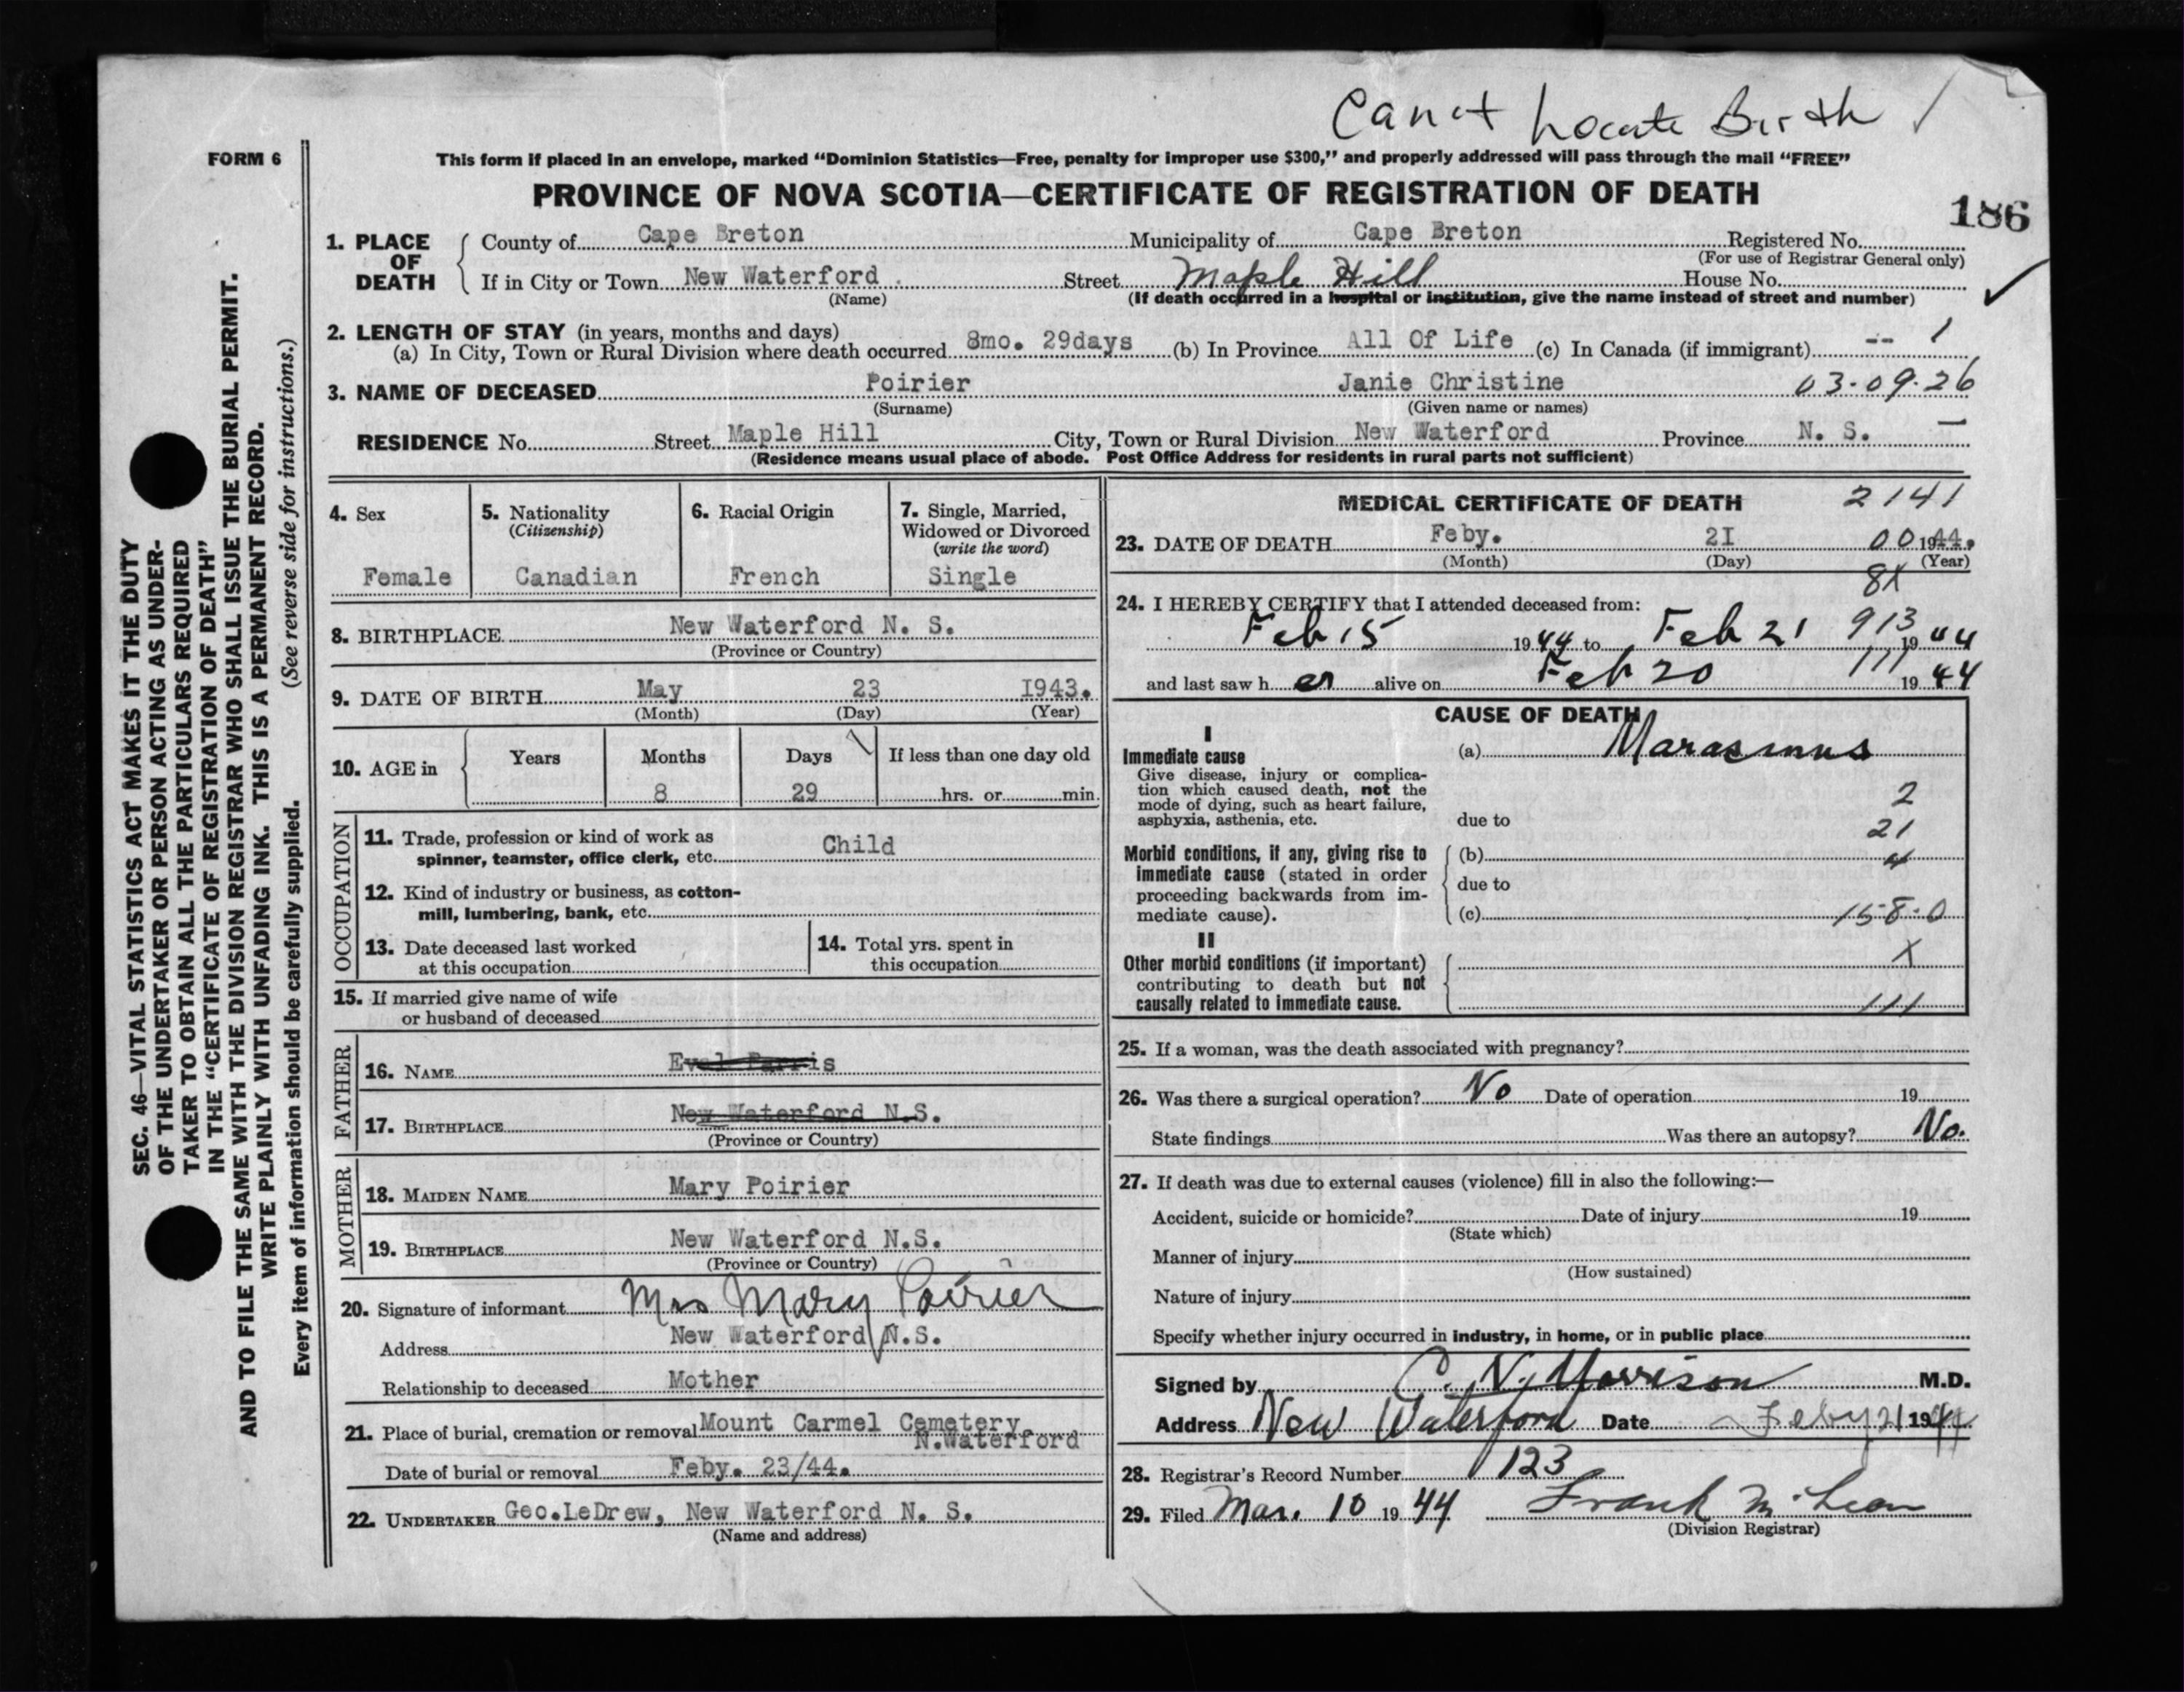 Canot Locate Birth /
FORM 6
This form if placed in an envelope, marked “Dominion Statistics—Free, penalty for improper use $300,” and properly addressed will pass through the mail “FREE”
PROVINCE OF NOVA SCOTIA—CERTIFICATE OF REGISTRATION OF DEATH
186
1. PLACE OF DEATH
County of Cape Breton Municipality of Cape Breton Registered No.
(For use of Registrar General only)
If in City or Town New Waterford Street Maple Hill House No.
(Name) (If death occurred in a hospital or institution, give the name instead of street and number)
2. LENGTH OF STAY (in years, months and days)
(a) In City, Town or Rural Division where death occurred 8mo. 29days (b) In Province All Of Life (c) In Canada (if immigrant) -- 1
3. NAME OF DECEASED Poirier Janie Christine 03-09-26
(Surname) (Given name or names)
RESIDENCE No. Street Maple Hill City, Town or Rural Division New Waterford Province N. S. —
(Residence means usual place of abode. Post Office Address for residents in rural parts not sufficient)
4. Sex
Female
5. Nationality
(Citizenship)
Canadian
6. Racial Origin
French
7. Single, Married,
Widowed or Divorced
(write the word)
Single
8. BIRTHPLACE New Waterford N. S.
(Province or Country)
9. DATE OF BIRTH May 23 I943.
(Month) (Day) (Year)
10. AGE in
Years Months Days If less than one day old
8 29 hrs. or min.
OCCUPATION
11. Trade, profession or kind of work as
spinner, teamster, office clerk, etc. Child
12. Kind of industry or business, as cotton-
mill, lumbering, bank, etc.
13. Date deceased last worked
at this occupation
14. Total yrs. spent in
this occupation
15. If married give name of wife
or husband of deceased
FATHER
16. NAME
17. BIRTHPLACE New Waterford N.S.
(Province or Country)
MOTHER
18. MAIDEN NAME Mary Poirier
19. BIRTHPLACE New Waterford N.S.
(Province or Country)
20. Signature of informant Mrs Mary Poirier
Address New Waterford N.S.
Relationship to deceased Mother
21. Place of burial, cremation or removal Mount Carmel Cemetery
N.Waterford
Date of burial or removal Feby. 23/44.
22. UNDERTAKER Geo.LeDrew, New Waterford N. S.
(Name and address)
MEDICAL CERTIFICATE OF DEATH 2141
23. DATE OF DEATH Feby. 2I 00 1944.
(Month) (Day) (Year)
8X
24. I HEREBY CERTIFY that I attended deceased from:
913
Feb 15 1944 to Feb 21 1944
111
and last saw her alive on Feb 20 1944
CAUSE OF DEATH
I
Immediate cause
Give disease, injury or complica-
tion which caused death, not the
mode of dying, such as heart failure,
asphyxia, asthenia, etc.
(a) Marasmus
2
due to
21
Morbid conditions, if any, giving rise to
immediate cause (stated in order
proceeding backwards from im-
mediate cause).
(b) 4
due to
(c) 158.0
II
Other morbid conditions (if important)
contributing to death but not
causally related to immediate cause.
X
111
25. If a woman, was the death associated with pregnancy?
26. Was there a surgical operation? No Date of operation 19
State findings Was there an autopsy? No.
27. If death was due to external causes (violence) fill in also the following:—
Accident, suicide or homicide? Date of injury 19
(State which)
Manner of injury
(How sustained)
Nature of injury
Specify whether injury occurred in industry, in home, or in public place
Signed by C. N. Morrison M.D.
Address New Waterford Date Feby 21 1944
28. Registrar's Record Number 123
29. Filed Mar. 10 1944 Frank McLean
(Division Registrar)
SEC. 46—VITAL STATISTICS ACT MAKES IT THE DUTY
OF THE UNDERTAKER OR PERSON ACTING AS UNDER-
TAKER TO OBTAIN ALL THE PARTICULARS REQUIRED
IN THE “CERTIFICATE OF REGISTRATION OF DEATH”
AND TO FILE THE SAME WITH THE DIVISION REGISTRAR WHO SHALL ISSUE THE BURIAL PERMIT.
WRITE PLAINLY WITH UNFADING INK. THIS IS A PERMANENT RECORD.
Every item of information should be carefully supplied. (See reverse side for instructions.)